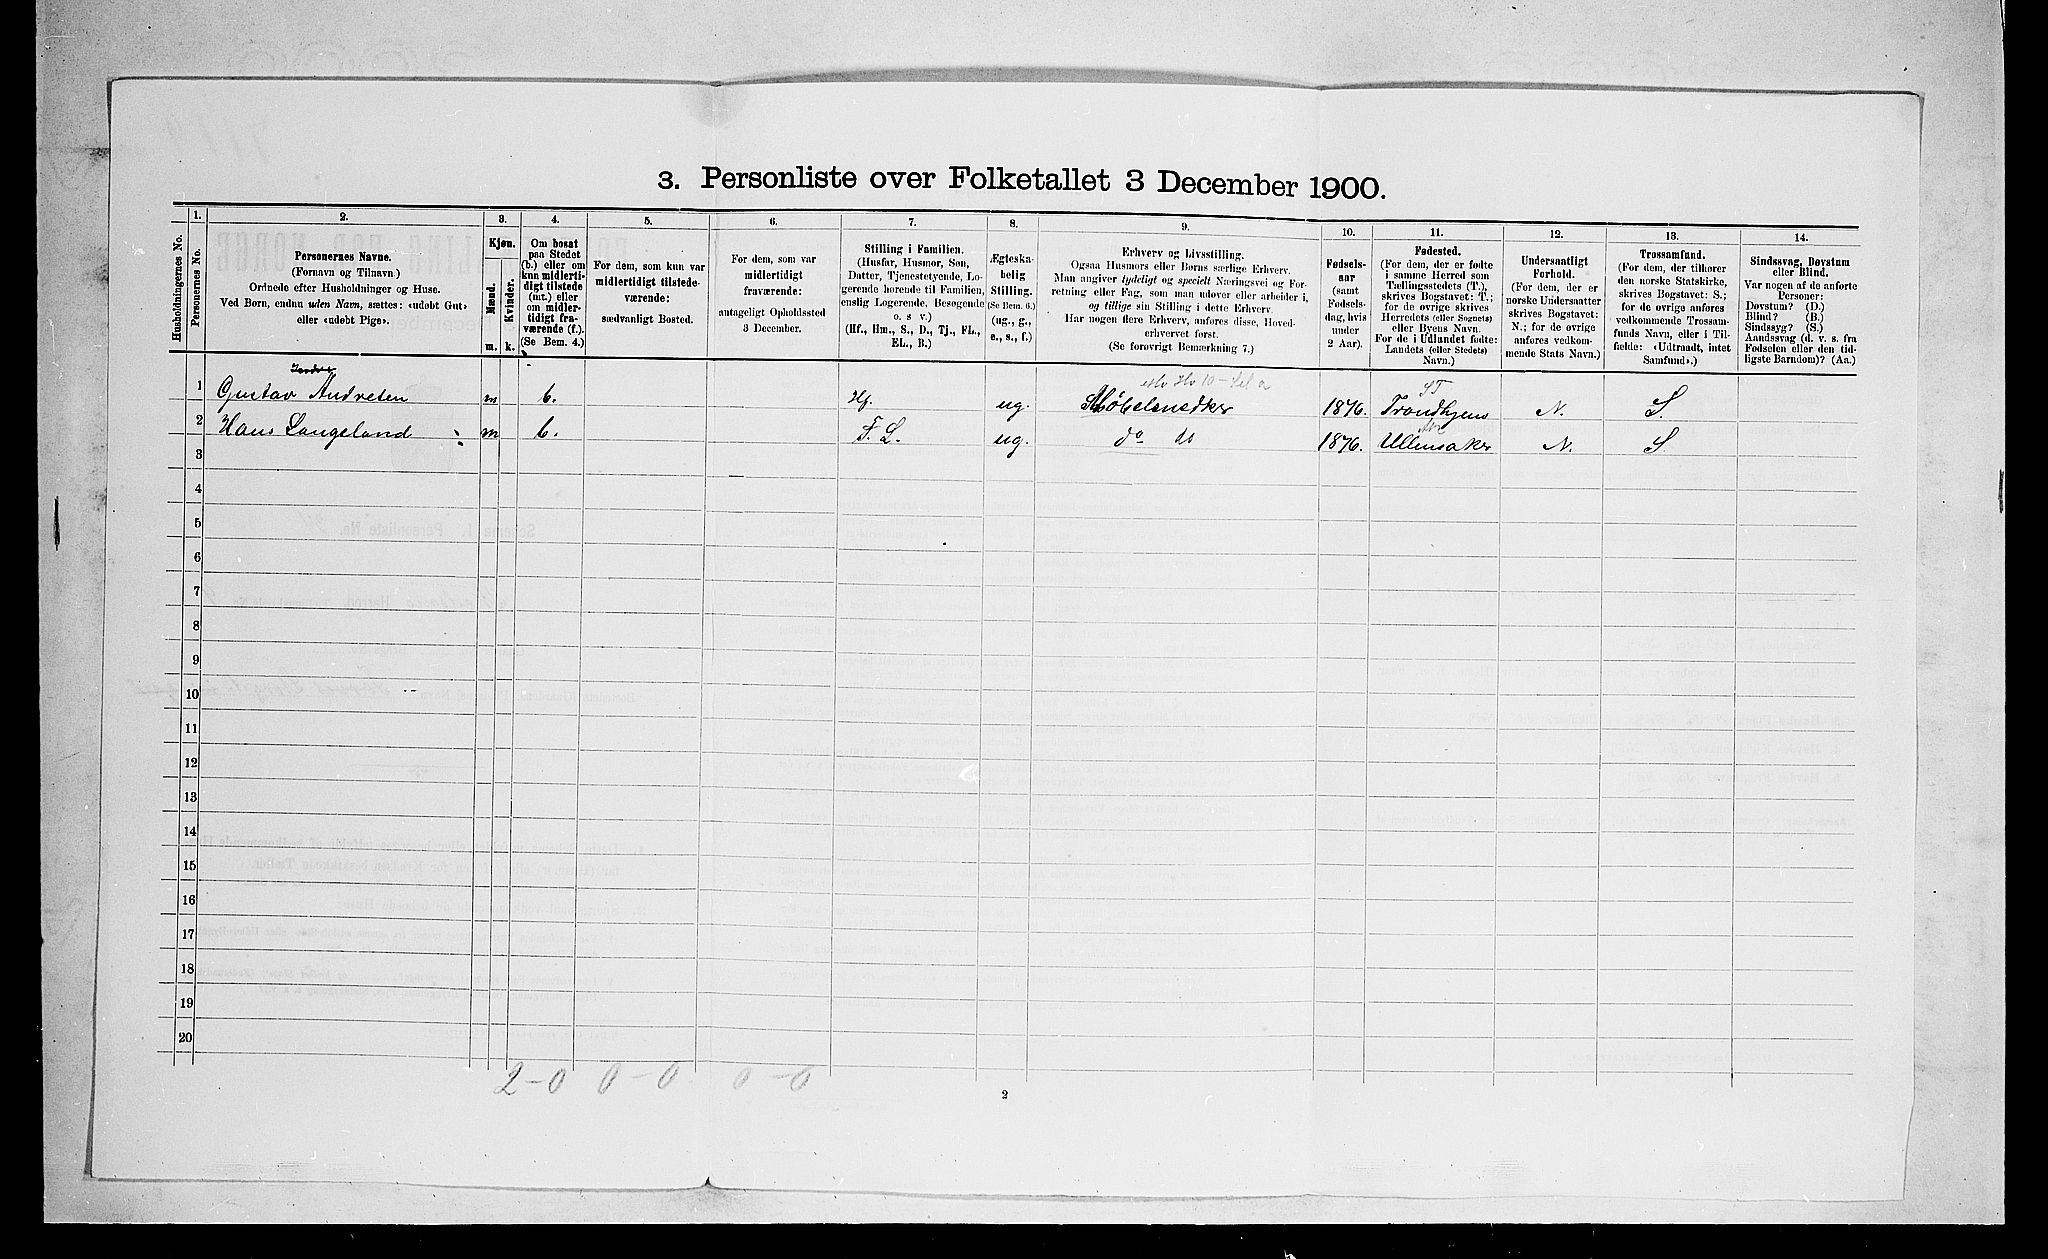 3. Personliste over Folketallet 3 December 1900.
1. 2. 3. 4. 5. 6. 7. 8. 9. 10. 11. 12. 13. 14.
Husholdningernes No.
Personernes No.
Personernes Navne.
(Fornavn og Tilnavn)
Ordnede efter Husholdninger og Huse.
Ved Børn, endnu uden Navn, sættes: «udøbt Gut»
eller «udøbt Pige».
Kjøn.
Mænd.
Kvinder.
m. k.
Om bosat
paa Stedet
(b.) eller om
kun midler-
tidigt tilstede
(mt.) eller
om midler-
tidigt fra-
værende (f.).
(Se Bem. 4.)
For dem, som kun var
midlertidigt tilstede-
værende:
sædvanligt Bosted.
For dem, som var
midlertidigt
fraværende:
antageligt Opholdssted
3 December.
Stilling i Familien.
(Husfar, Husmor, Søn,
Datter, Tjenestetyende, Lo-
gerende hørende til Familien,
enslig Logerende, Besøgende
o. s v.)
(Hf., Hm., S., D., Tj., FL.,
EL., B.)
Ægteska-
belig
Stilling.
(Se Bem. 6.)
(ug., g.,
e., s., f.)
Erhverv og Livsstilling.
Ogsaa Husmors eller Børns særlige Erhverv.
Man angiver tydeligt og specielt Næringsvei og For-
retning eller Fag, som man udøver eller arbeider i,
og tillige sin Stilling i dette Erhverv.
Har nogen flere Erhverv, anføres disse, Hoved-
erhvervet først.
(Se forøvrigt Bemærkning 7.)
Fødsels-
aar
(samt
Fødsels-
dag, hvis
under
2 Aar).
Fødested.
(For dem, der er fødte
i samme Herred som
Tællingsstedets (T.),
skrives Bogstavet: T.;
for de øvrige skrives
Herredets (eller Sognets)
eller Byens Navn.
For de i Udlandet fødte:
Landets (eller Stedets)
Navn.)
Undersaatligt
Forhold.
(For dem, der er
norske Undersaatter
skrives Bogstavet:
N.; for de øvrige
anføres vedkom-
mende Stats Navn.)
Trossamfund.
(For dem, der tilhører
den norske Statskirke,
skrives Bogstavet: S.;
for de øvrige anføres
vedkommende Trossam-
funds Navn, eller i Til-
fælde: «Udtraadt, intet
Samfund».)
Sindssvag, Døvstum
eller Blind.
Var nogen af de anførte
Personer:
Døvstum? (D.)
Blind? (B.)
Sindssyg? (S.)
Aandssvag (d. v. s. fra
Fødselen eller den tid-
ligste Barndom)? (Aa.)
1 Gustav Andresen m b. Hf. ug. Møbelsnedker 1876. Trondhjem N. S.
2 Hans Langeland m b. F. L. ug. do do 1876. Ullensaker N. S
3
4
5
6
7
8
9
10
11
12
13
14
15
16
17
18
19
20
2-0 0-0 0-0
2